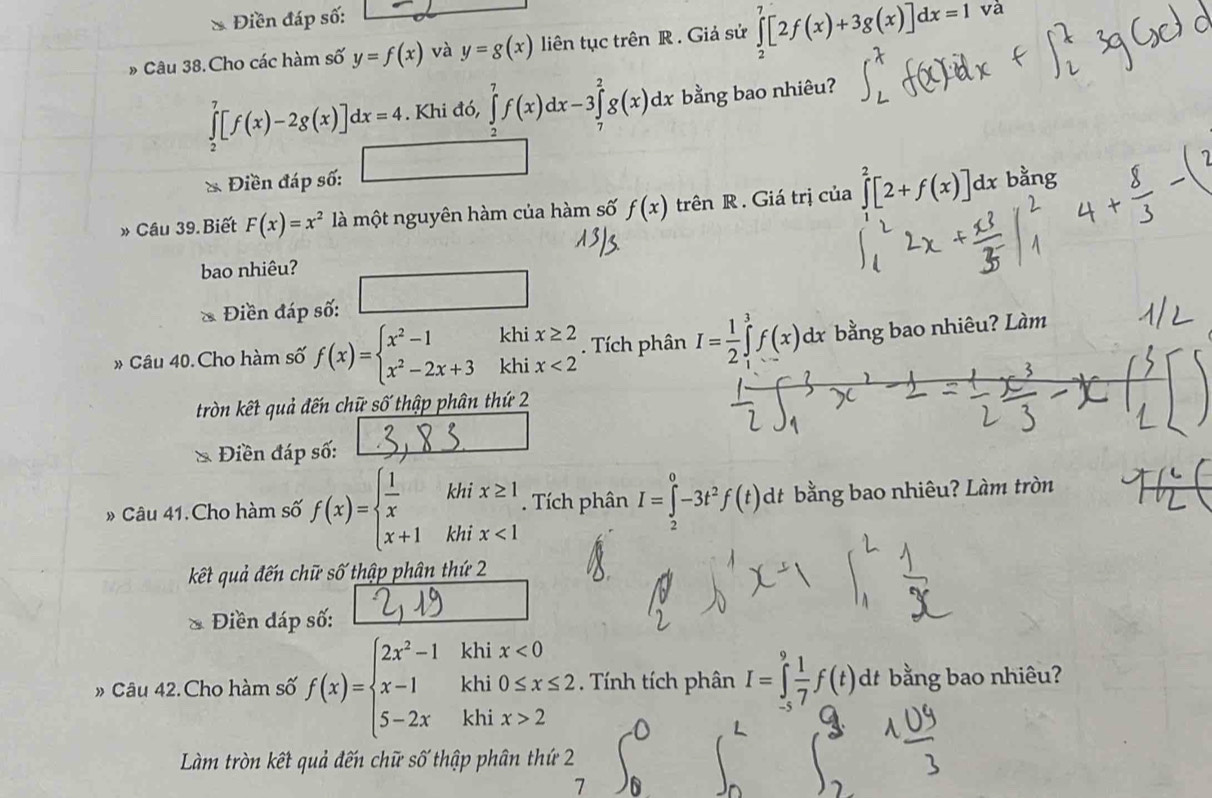 Điền đáp số:
» Câu 38. Cho các hàm số y = f(x) và y = g(x) liên tục trên ℝ. Giả sử ∫₂⁷[2f(x)+3g(x)]dx = 1 và
∫₂⁷[f(x)−2g(x)]dx = 4. Khi đó, ∫₂⁷f(x)dx − 3∫₇²g(x)dx bằng bao nhiêu?
Điền đáp số:
» Câu 39. Biết F(x) = x² là một nguyên hàm của hàm số f(x) trên ℝ. Giá trị của ∫₁²[2+f(x)]dx bằng
13/3
∫₁² 2x + x³/3 |₁² 4 + 8/3 −
bao nhiêu?
Điền đáp số:
» Câu 40. Cho hàm số f(x) = { x²−1 khi x ≥ 2
x²−2x+3 khi x < 2 . Tích phân I = 1/2 ∫₁³f(x)dx bằng bao nhiêu? Làm
1/2
tròn kết quả đến chữ số thập phân thứ 2
Điền đáp số: 3,83
» Câu 41. Cho hàm số f(x) = { 1/x khi x ≥ 1
x+1 khi x < 1 . Tích phân I = ∫₂⁰−3t²f(t)dt bằng bao nhiêu? Làm tròn
kết quả đến chữ số thập phân thứ 2
Điền đáp số: 2,19
» Câu 42. Cho hàm số f(x) = { 2x²−1 khi x < 0
x−1 khi 0 ≤ x ≤ 2
5−2x khi x > 2 . Tính tích phân I = ∫₋₅⁹ 1/7 f(t)dt bằng bao nhiêu?
109/3
Làm tròn kết quả đến chữ số thập phân thứ 2
7